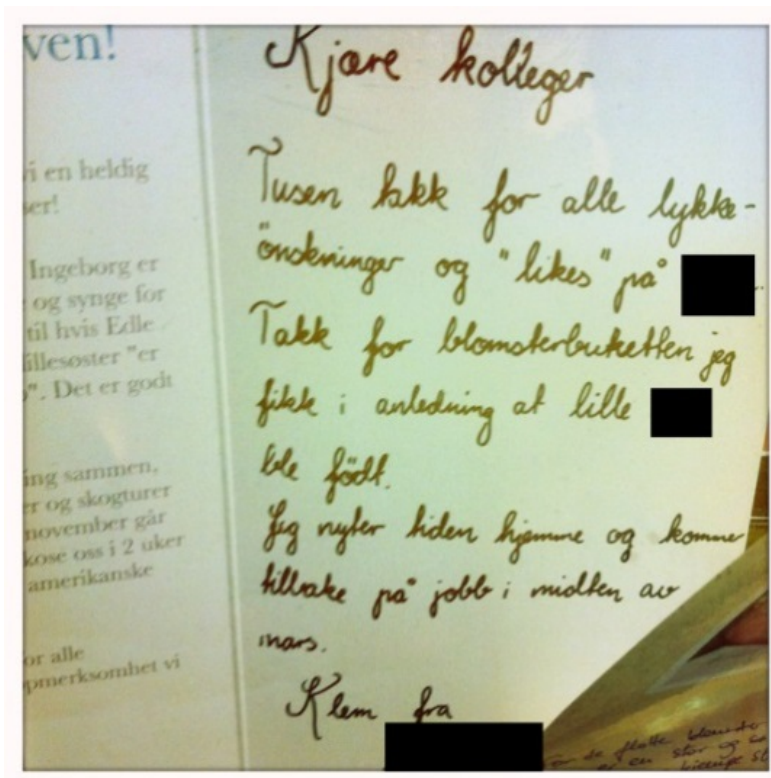 ven!
vi en heldig
ser!
Ingeborg er
og synge for
til hvis Edle
lillesøster "er
". Det er godt
ing sammen,
er og skogturer
november går
kose oss i 2 uker
amerikanske
or alle
pmerksomhet vi
Kjære kolleger
Tusen takk for alle lykke-
önskninger og "likes" på
Takk for blomsterbuketten jeg
fikk i anledning at lille
ble födt.
Jeg nyter tiden hjemme og kommer
tilbake på jobb i midten av
mars.
Klem fra
for de flotte blomste
er en stor og